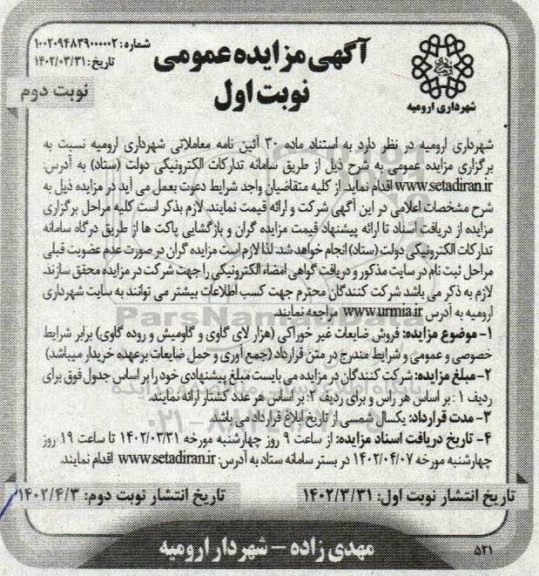 آگهی مزایده عمومی
نوبت اول
شماره: ۱۰۰۲۰۹۴۸۳۹۰۰۰۰۰۲
تاریخ: ۱۴۰۲/۰۳/۳۱
نوبت دوم
شهرداری ارومیه
شهرداری ارومیه در نظر دارد به استناد ماده ۳۰ آئین نامه معاملاتی شهرداری ارومیه نسبت به
برگزاری مزایده عمومی به شرح ذیل از طریق سامانه تدارکات الکترونیکی دولت (ستاد) به آدرس:
www.setadiran.ir اقدام نماید. از کلیه متقاضیان واجد شرایط دعوت بعمل می آید در مزایده ذیل به
شرح مشخصات اعلامی در این آگهی شرکت و ارائه قیمت نمایند. لازم بذکر است کلیه مراحل برگزاری
مزایده از دریافت اسناد تا ارائه پیشنهاد قیمت مزایده گران و بازگشایی پاکت ها از طریق درگاه سامانه
تدارکات الکترونیکی دولت (ستاد) انجام خواهد شد. لذا لازم است مزایده گران در صورت عدم عضویت قبلی
مراحل ثبت نام در سایت مذکور و دریافت گواهی امضاء الکترونیکی را جهت شرکت در مزایده محقق سازند.
لازم به ذکر می باشد شرکت کنندگان محترم جهت کسب اطلاعات بیشتر می توانند به سایت شهرداری
ارومیه به آدرس www.urmia.ir مراجعه نمایند.
۱- موضوع مزایده: فروش ضایعات غیر خوراکی (هزار لای گاوی و گاومیش و روده گاوی) برابر شرایط
خصوصی و عمومی و شرایط مندرج در متن قرارداد (جمع آوری و حمل ضایعات برعهده خریدار میباشد)
۲- مبلغ مزایده: شرکت کنندگان در مزایده می بایست مبلغ پیشنهادی خود را بر اساس جدول فوق برای
ردیف ۱: بر اساس هر راس و برای ردیف ۲: بر اساس هر عدد کشتار ارائه نمایند.
۳- مدت قرارداد: یکسال شمسی از تاریخ ابلاغ قرارداد می باشد.
۴- تاریخ دریافت اسناد مزایده: از ساعت ۹ روز چهارشنبه مورخه ۱۴۰۲/۰۳/۳۱ تا ساعت ۱۹ روز
چهارشنبه مورخه ۱۴۰۲/۰۴/۰۷ در بستر سامانه ستاد به آدرس: www.setadiran.ir اقدام نمایند.
تاریخ انتشار نوبت اول: ۱۴۰۲/۳/۳۱ تاریخ انتشار نوبت دوم: ۱۴۰۲/۴/۳
۵۲۱ مهدی زاده - شهردار ارومیه